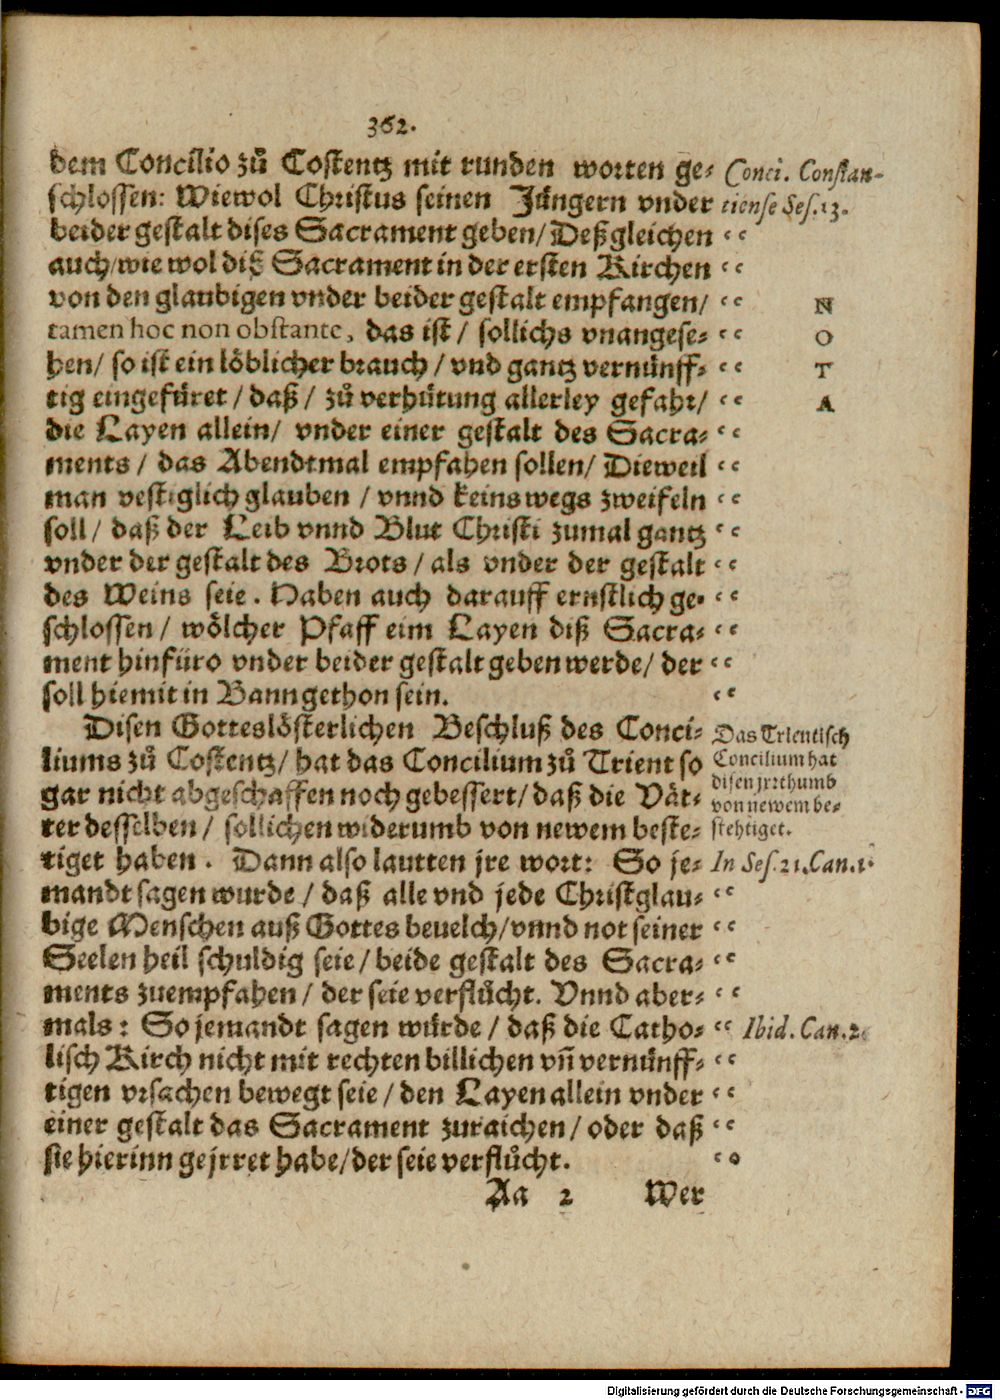 362.
dem Concilio zů Costentz mit runden worten ge-
schlossen: Wiewol Christus seinen Jüngern vnder
beider gestalt dises Sacrament geben/ Deßgleichen
auch/ wie wol diß Sacrament in der ersten Kirchen
von den glaubigen vnder beider gestalt empfangen/
tamen hoc non obstante, das ist/ sollichs vnangese-
hen/ so ist ein löblicher brauch/ vnd gantz vernünff-
tig eingefüret/ daß/ zů verhütung allerley gefahr/
die Layen allein/ vnder einer gestalt des Sacra-
ments/ das Abendtmal empfahen sollen/ Dieweil
man vestiglich glauben/ vnnd keins wegs zweifeln
soll/ daß der Leib vnnd Blut Christi zumal gantz
vnder der gestalt des Brots/ als vnder der gestalt
des Weins seie. Haben auch darauff ernstlich ge-
schlossen/ wölcher Pfaff eim Layen diß Sacra-
ment hinfüro vnder beider gestalt geben werde/ der
soll hiemit in Bann gethon sein.
Conci. Constan-
tiense Ses. 13.
N
O
T
A
Disen Gotteslösterlichen Beschluß des Conci-
liums zů Costentz/ hat das Concilium zů Trient so
gar nicht abgeschaffen noch gebessert/ daß die Vät-
ter desselben/ sollichen widerumb von newem beste-
tiget haben. Dann also lautten jre wort: So je-
mandt sagen wurde/ daß alle vnd jede Christglau-
bige Menschen auß Gottes beuelch/ vnnd not seiner
Seelen heil schuldig seie/ beide gestalt des Sacra-
ments zuempfahen/ der seie verflůcht. Vnnd aber-
mals: So jemandt sagen würde/ daß die Catho-
lisch Kirch nicht mit rechten billichen vñ vernünff-
tigen vrsachen bewegt seie/ den Layen allein vnder
einer gestalt das Sacrament zuraichen/ oder daß
sie hierinn gejrret habe/ der seie verflůcht.
Das Trientisch
Concilium hat
disen jrrthumb
von newem be-
stehtiget.
In Ses. 21. Can. 1.
Ibid. Can. 2.
Aa 2 Wer
Digitalisierung gefördert durch die Deutsche Forschungsgemeinschaft - DFG